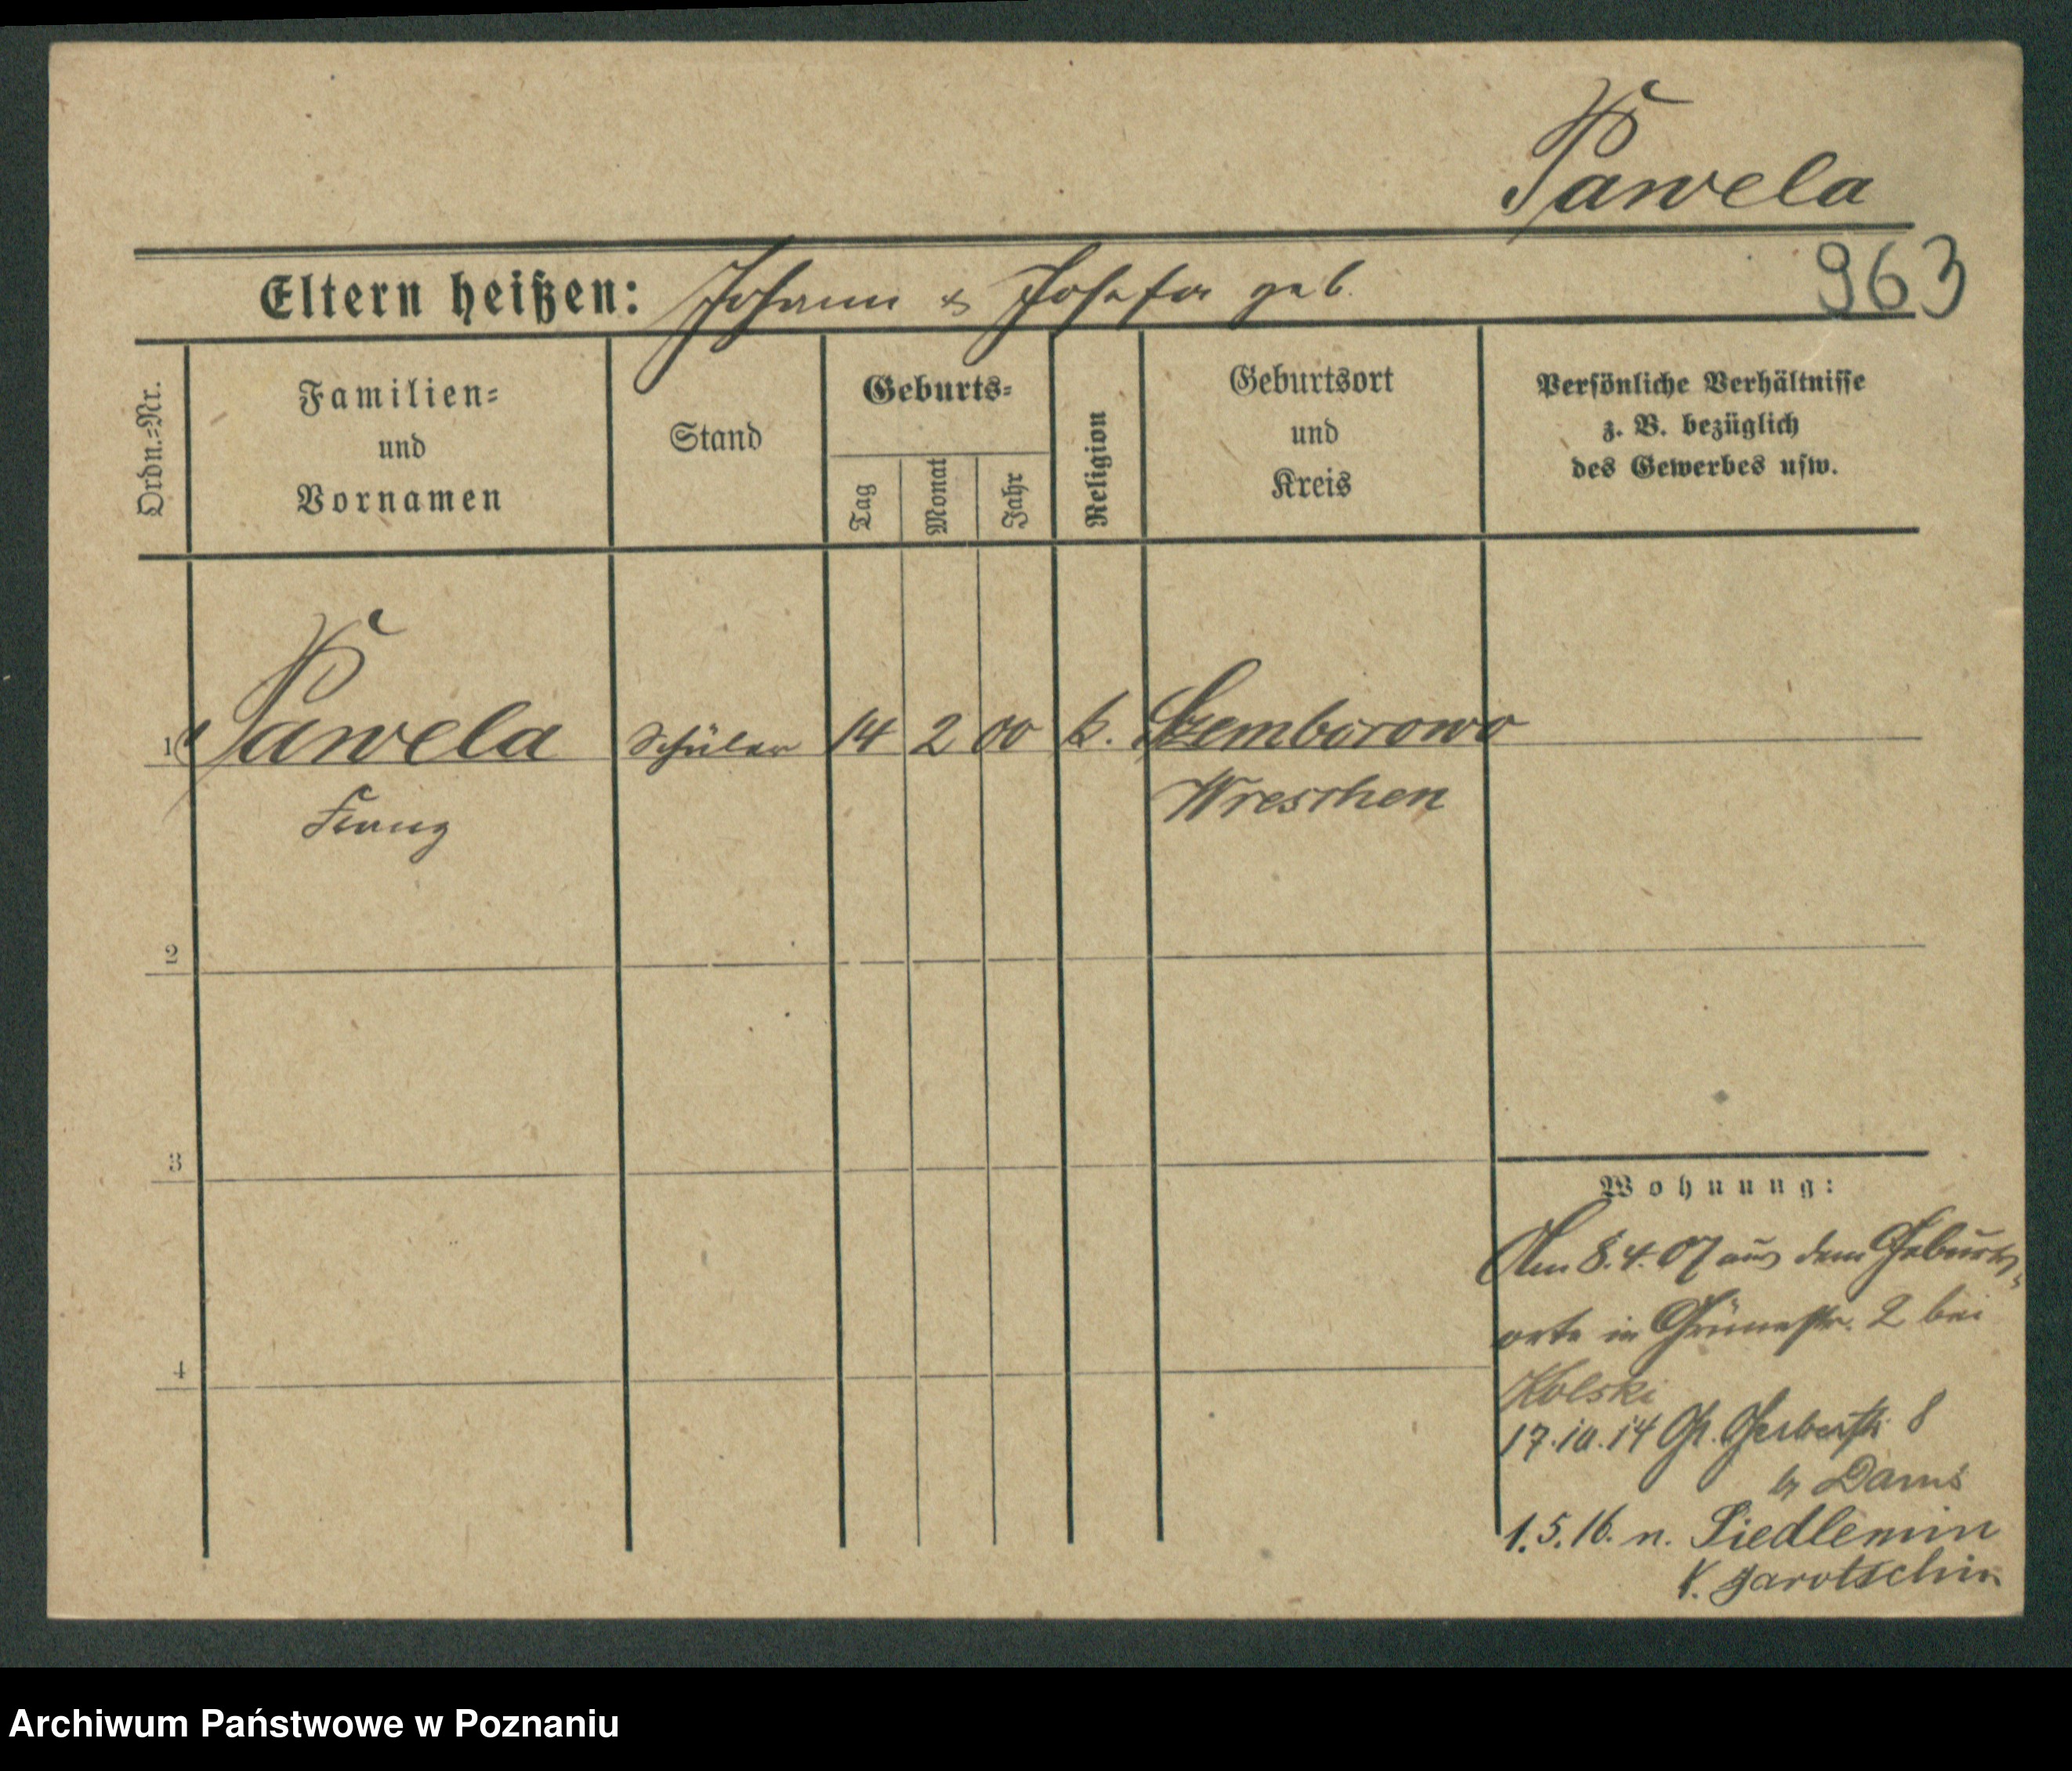 Pawela
963
Eltern heißen: Johann & Josefa geb.
Ordn.-Nr.
Familien-
und
Vornamen
Stand
Geburts-
Tag
Monat
Jahr
Religion
Geburtsort
und
Kreis
Persönliche Verhältnisse
z. B. bezüglich
des Gewerbes usw.
1 Pawela Schüler 14 2 00 k. Szemborowo
Franz Wreschen
2
3
4
Wohnung:
Am 8.4.07 aus dem Geburts-
orte in Grünestr. 2 bei
Kolski
17.10.14 Gr. Gerberstr. 8
b/
1.5.16. n. Siedlemin
K. Jarotschin
Archiwum Państwowe w Poznaniu